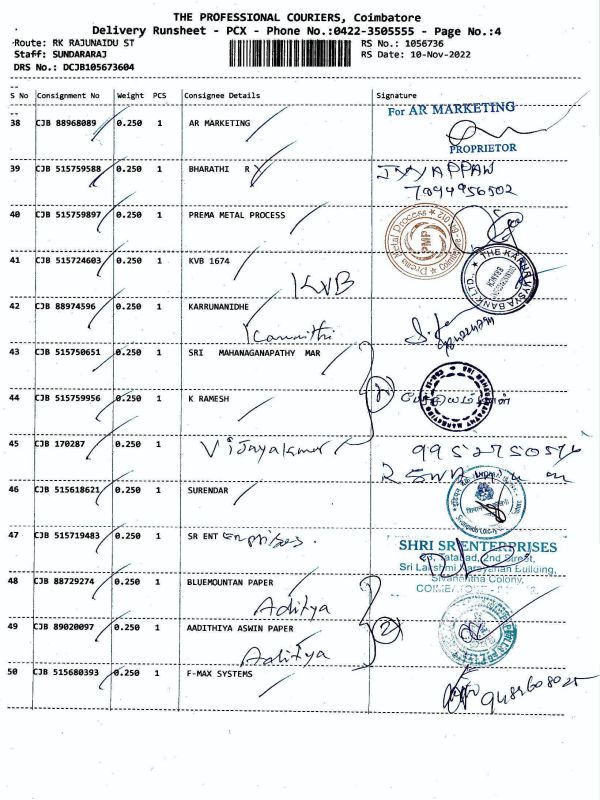 THE PROFESSIONAL COURIERS, Coimbatore
Delivery Runsheet - PCX - Phone No.:0422-3505555 - Page No.:4
Route: RK RAJUNAIDU ST RS No.: 1056736
Staff: SUNDARARAJ RS Date: 10-Nov-2022
DRS No.: DCJB105673604
S No Consignment No Weight PCS Consignee Details Signature
38 CJB 88968089 0.250 1 AR MARKETING
For AR MARKETING
PROPRIETOR
39 CJB 515759588 0.250 1 BHARATHI R
40 CJB 515759897 0.250 1 PREMA METAL PROCESS
Prema Metal Process
PMP
41 CJB 515724603 0.250 1 KVB 1674
KVB
THE KARUR VYSYA BANK LTD.
BRANCH
42 CJB 88974596 0.250 1 KARRUNANIDHE
43 CJB 515750651 0.250 1 SRI MAHANAGANAPATHY MAR
44 CJB 515759956 0.250 1 K RAMESH
45 CJB 170287 0.250 1 Vijayakumar
46 CJB 515618621 0.250 1 SURENDAR
47 CJB 515719483 0.250 1 SR ENT Enterprises.
SHRI SRI ENTERPRISES
2nd Street,
Sri Lakshmi Narayanan Building,
Sivanantha Colony,
48 CJB 88729274 0.250 1 BLUEMOUNTAN PAPER
Aditya
49 CJB 89020097 0.250 1 AADITHIYA ASWIN PAPER
2
Aditya
50 CJB 515680393 0.250 1 F-MAX SYSTEMS